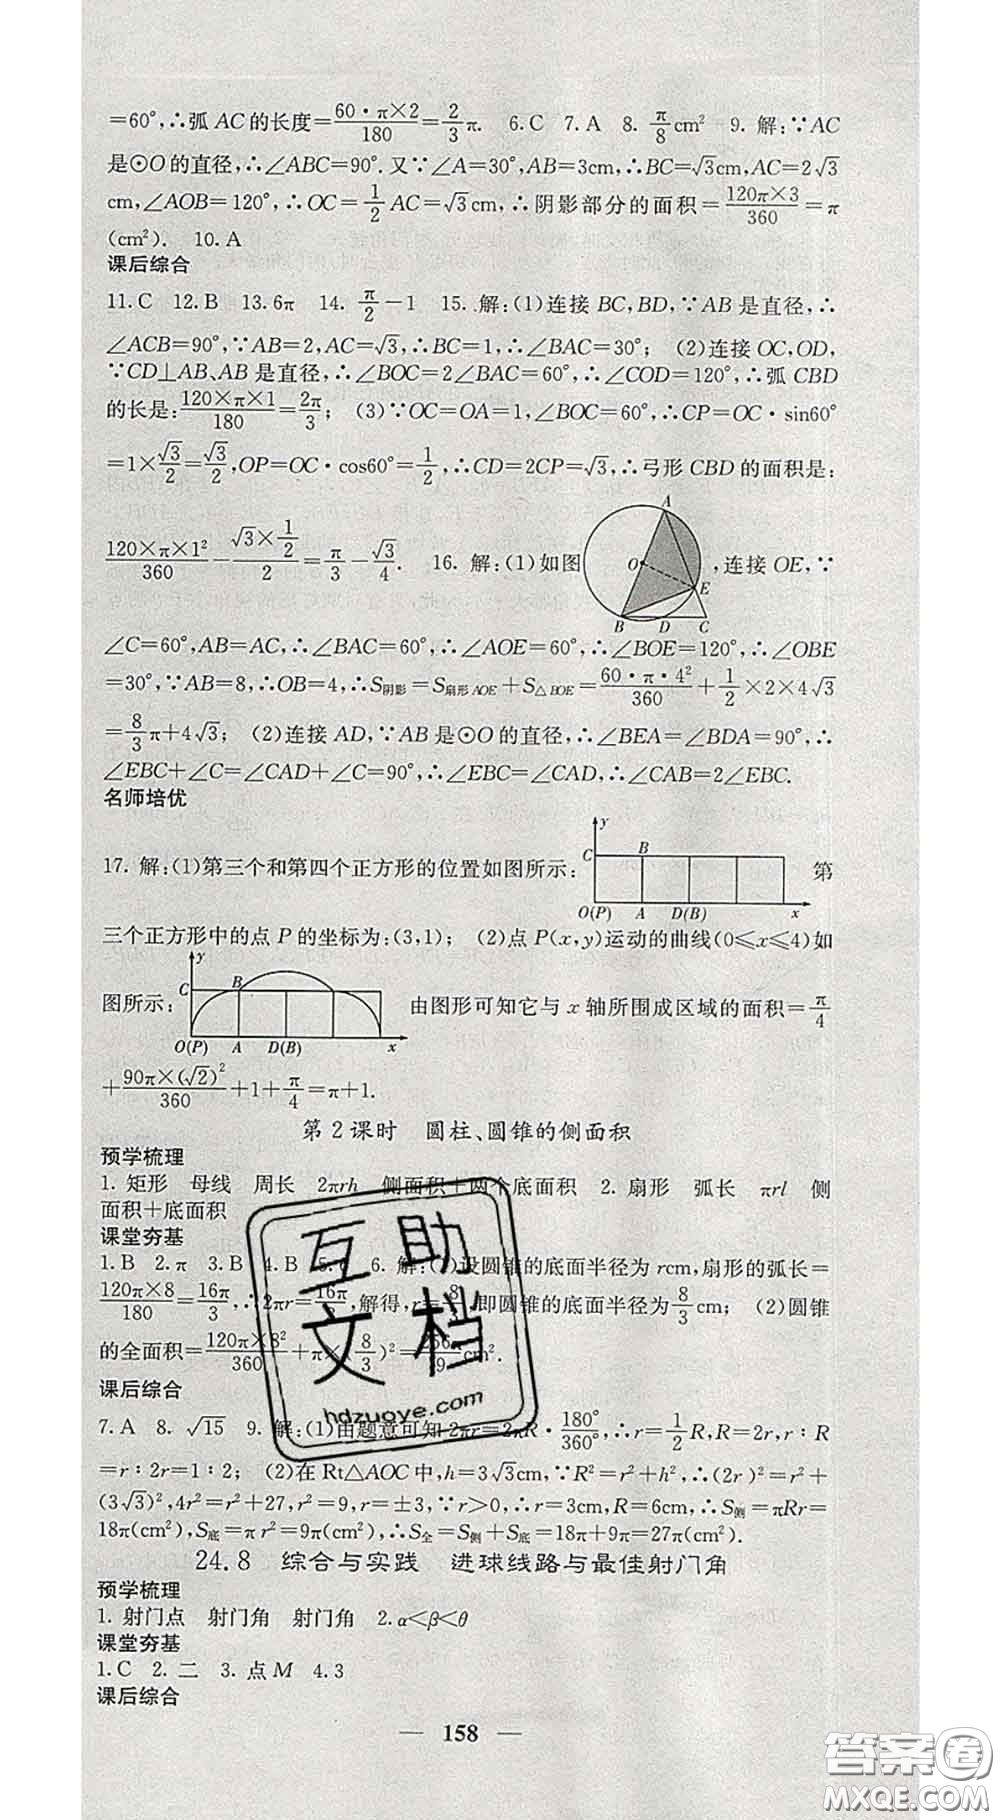 =60°,∴弧AC的长度=60·π×2/180=2/3π. 6.C 7.A 8. π/8cm² 9. 解:∵AC
是⊙O的直径,∴∠ABC=90°.又∵∠A=30°,AB=3cm,∴BC=√3cm,AC=2√3
cm,∠AOB=120°,∴OC=1/2AC=√3cm,∴阴影部分的面积=120π×3/360=π
(cm²). 10.A
课后综合
11.C 12.B 13.6π 14. π/2-1 15.解:(1)连接BC,BD,∵AB是直径,∴
∠ACB=90°,∵AB=2,AC=√3,∴BC=1,∴∠BAC=30°; (2)连接OC,OD,
∵CD⊥AB、AB是直径,∴∠BOC=2∠BAC=60°,∴∠COD=120°,∴弧CBD
的长是:120×π×1/180=2π/3; (3)∵OC=OA=1,∠BOC=60°,∴CP=OC·sin60°
=1×√3/2=√3/2,OP=OC·cos60°=1/2,∴CD=2CP=√3,∴弓形CBD的面积是:
120×π×1²/360-(√3×1/2)/2=π/3-√3/4. 16.解:(1)如图 A O E B D C ,连接OE,∵
∠C=60°,AB=AC,∴∠BAC=60°,∴∠AOE=60°,∴∠BOE=120°,∴∠OBE
=30°,∵AB=8,∴OB=4,∴S阴影=S扇形AOE+S△BOE=60·π·4²/360+1/2×2×4√3
=8/3π+4√3; (2)连接AD,∵AB是⊙O的直径,∴∠BEA=∠BDA=90°,∴
∠EBC+∠C=∠CAD+∠C=90°,∴∠EBC=∠CAD,∴∠CAB=2∠EBC.
名师培优
17.解:(1)第三个和第四个正方形的位置如图所示: y C B O(P) A D(B) x 第
三个正方形中的点P的坐标为:(3,1); (2)点P(x,y)运动的曲线(0≤x≤4)如
图所示: y C B O(P) A D(B) x 由图形可知它与x轴所围成区域的面积=π/4
+90π×(√2)²/360+1+π/4=π+1.
第2课时 圆柱、圆锥的侧面积
预学梳理
1. 矩形 母线 周长 2πrh 侧面积+两个底面积 2. 扇形 弧长 πrl 侧
面积+底面积
课堂夯基
1.B 2.π 3.B 4.B 5.6 6. 解:(1)设圆锥的底面半径为rcm,扇形的弧长=
120π×8/180=16π/3,∴2πr=16π/3,解得,r=8/3,即圆锥的底面半径为8/3cm; (2)圆锥
的全面积=120π×8²/360+π×(8/3)²=256π/9cm².
课后综合
7.A 8. √15 9.解:(1)由题意可知2πr=2πR·180°/360°,∴r=1/2R,R=2r,r∶R
=r∶2r=1∶2; (2)在Rt△AOC中,h=3√3cm,∵R²=r²+h²,∴(2r)²=r²+
(3√3)²,4r²=r²+27,r²=9,r=±3,∵r>0,∴r=3cm,R=6cm,∴S侧=πRr=
18π(cm²),S底=πr²=9π(cm²),∴S全=S侧+S底=18π+9π=27π(cm²).
24.8 综合与实践 进球线路与最佳射门角
预学梳理
1. 射门点 射门角 射门角 2.α<β<θ
课堂夯基
1.C 2.二 3.点M 4.3
课后综合
— 158 —
互助
文档
hdzuoye.com
答案圈
MXQE.COM